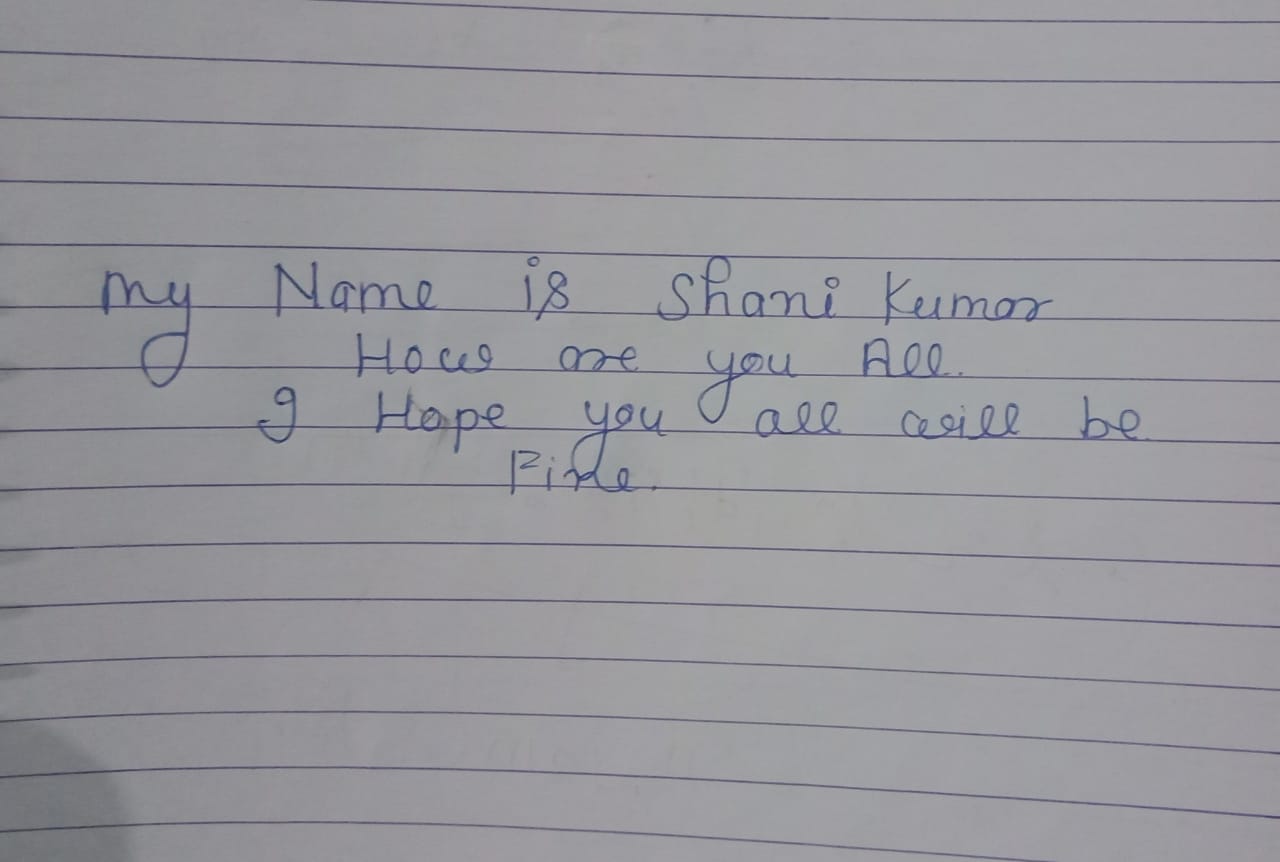 My Name is Shani Kumar
How are you All.
I Hope you all will be
Fine.